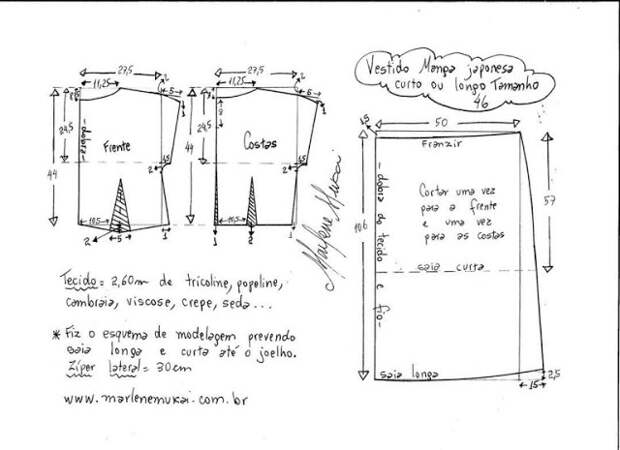 Vestido Manga japonesa
curto ou longo Tamanho
46
27,5
2
11,25
5
8
1
24,5
44
-dobra-
Frente
1,5
2
10,5
2
5
1
27,5
2
11,25
6
1
24,5
44
8
Costas
1,5
2
10,5
1
2
1
1,5
50
Franzir
-dobra do tecido e fio-
106
57
Cortar uma vez
para a frente
e uma vez
para as costas
saia curta
saia longa
15
2,5
Marlene Mukai
Tecido = 2,60m de tricoline, popeline,
cambraia, viscose, crepe, seda...
* Fiz o esquema de modelagem prevendo
saia longa e curta até o joelho.
Zíper lateral = 30cm
www.marlenemukai.com.br